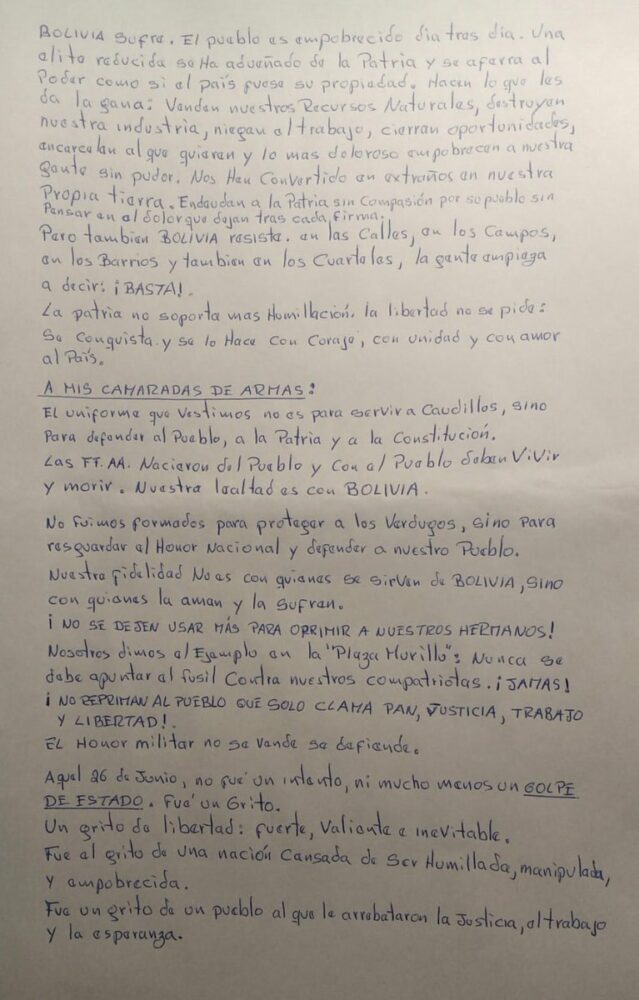 BOLIVIA sufre. El pueblo es empobrecido dia tras dia. Una
elite reducida se Ha adueñado de la Patria y se aferra al
Poder como si el país fuese su propiedad. Hacen lo que les
da la gana: Venden nuestros Recursos Naturales, destruyen
nuestra industria, niegan el trabajo, cierran oportunidades,
encarcelan al que quieren y lo mas doloroso empobrecen a nuestra
gente sin pudor. Nos Han Convertido en extraños en nuestra
Propia tierra. Endeudan a la Patria sin Compasión por su pueblo sin
Pensar en el dolor que dejan tras cada firma.
Pero tambien BOLIVIA resiste. en las Calles, en los Campos,
en los Barrios y tambien en los Cuarteles, la gente empieza
a decir: ¡BASTA!.
La patria no soporta mas Humillación. la libertad no se pide:
Se Conquista y se lo Hace con Coraje, con unidad y con amor
al País.
A MIS CAMARADAS DE ARMAS:
El uniforme que Vestimos no es para servir a Caudillos, sino
Para defender al Pueblo, a la Patria y a la Constitución.
Las FF.AA. Nacieron del Pueblo y Con el Pueblo deben ViVir
y morir. Nuestra lealtad es con BOLIVIA.
No Fuimos formados para proteger a los Verdugos, sino Para
resguardar el Honor Nacional y defender a nuestro Pueblo.
Nuestra fidelidad No es con quienes se sirven de BOLIVIA, sino
con quienes la aman y la sufren.
¡NO SE DEJEN USAR MÁS PARA OPRIMIR A NUESTROS HERMANOS!
Nosotros dimos el Ejemplo en la "Plaza Murillo": Nunca se
debe apuntar el fusil Contra nuestros compatriotas. ¡JAMAS!
¡NO REPRIMAN AL PUEBLO QUE SOLO CLAMA PAN, JUSTICIA, TRABAJO
Y LIBERTAD!.
EL Honor militar no se Vende se defiende.
Aquel 26 de Junio, no fue un intento, ni mucho menos un GOLPE
DE ESTADO. Fue un Grito.
Un grito de libertad: fuerte, Valiente e inevitable.
Fue el grito de una nación Cansada de Ser Humillada, manipulada,
y empobrecida.
Fue un grito de un pueblo al que le arrebataron la Justicia, el trabajo
y la esperanza.